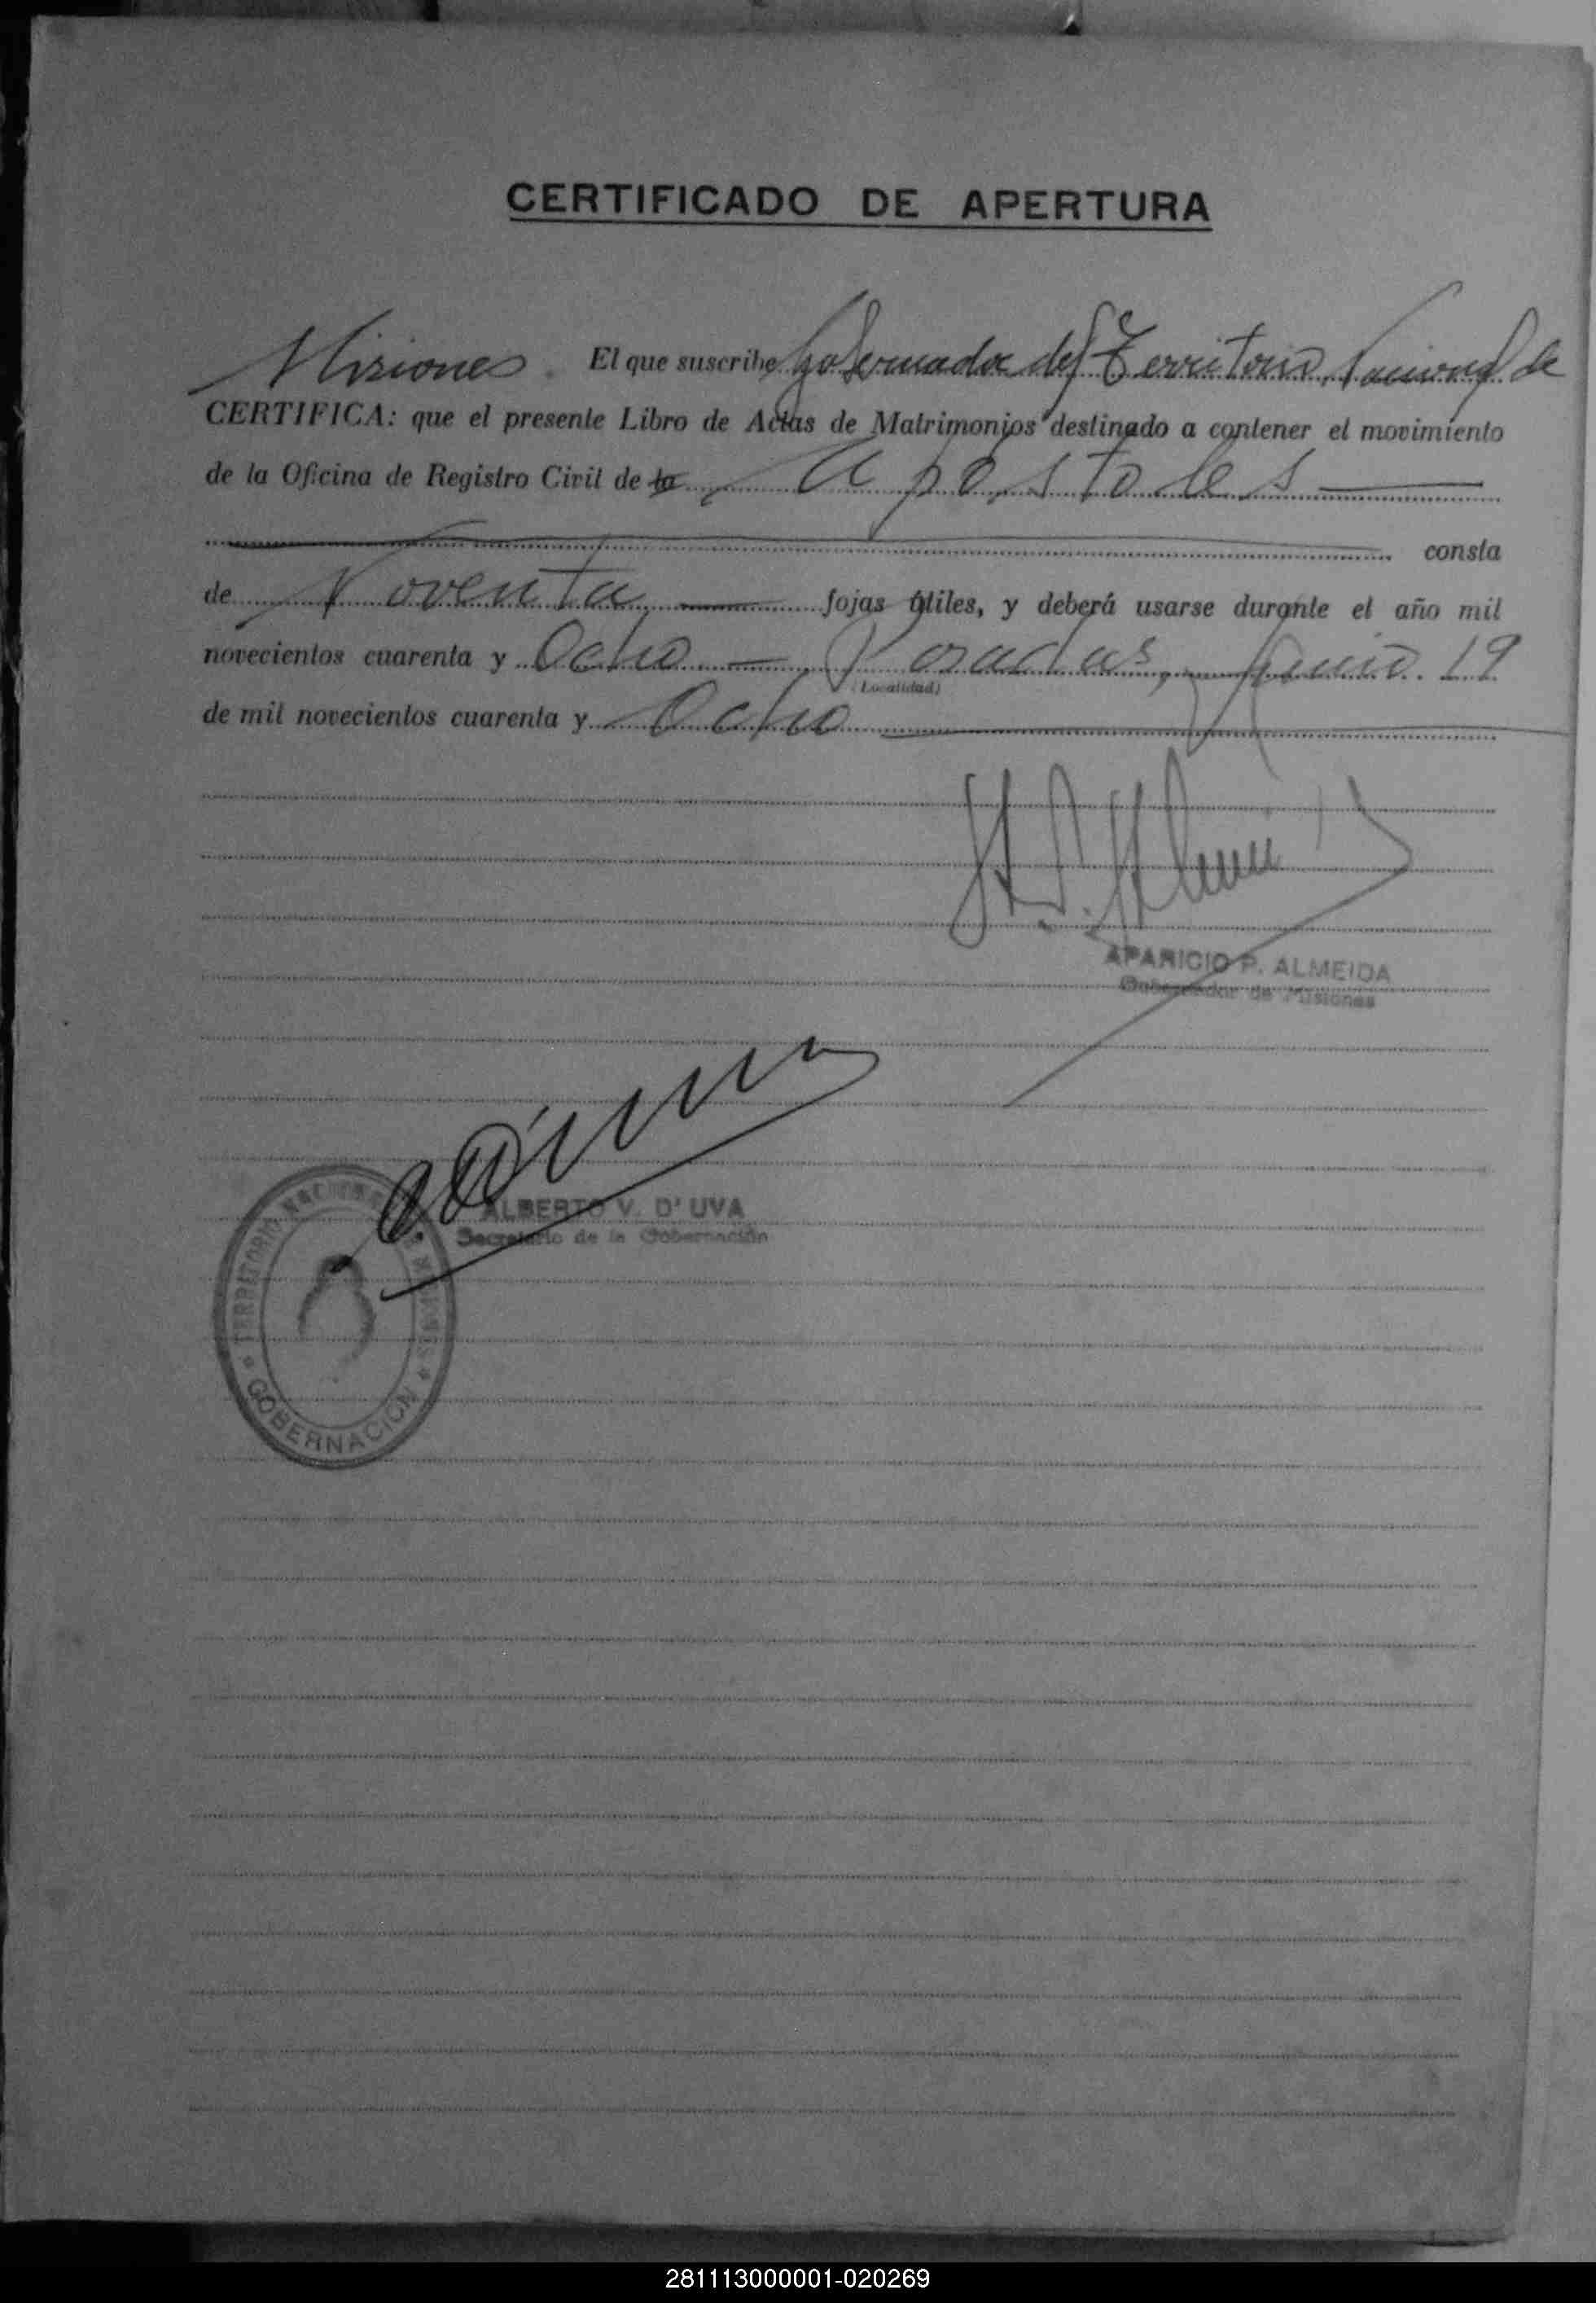 CERTIFICADO DE APERTURA
El que suscribe Gobernador del Territorio Nacional de
Misiones
CERTIFICA: que el presente Libro de Actas de Matrimonios destinado a contener el movimiento
de la Oficina de Registro Civil de la Apóstoles
consta
de Noventa fojas útiles, y deberá usarse durante el año mil
novecientos cuarenta y Ocho Posadas, Junio 19
(Localidad)
de mil novecientos cuarenta y Ocho
APARICIO P. ALMEIDA
Gobernador de Misiones
ALBERTO V. D' UVA
Secretario de la Gobernación
TERRITORIO NACIONAL DE MISIONES
GOBERNACION
281113000001-020269